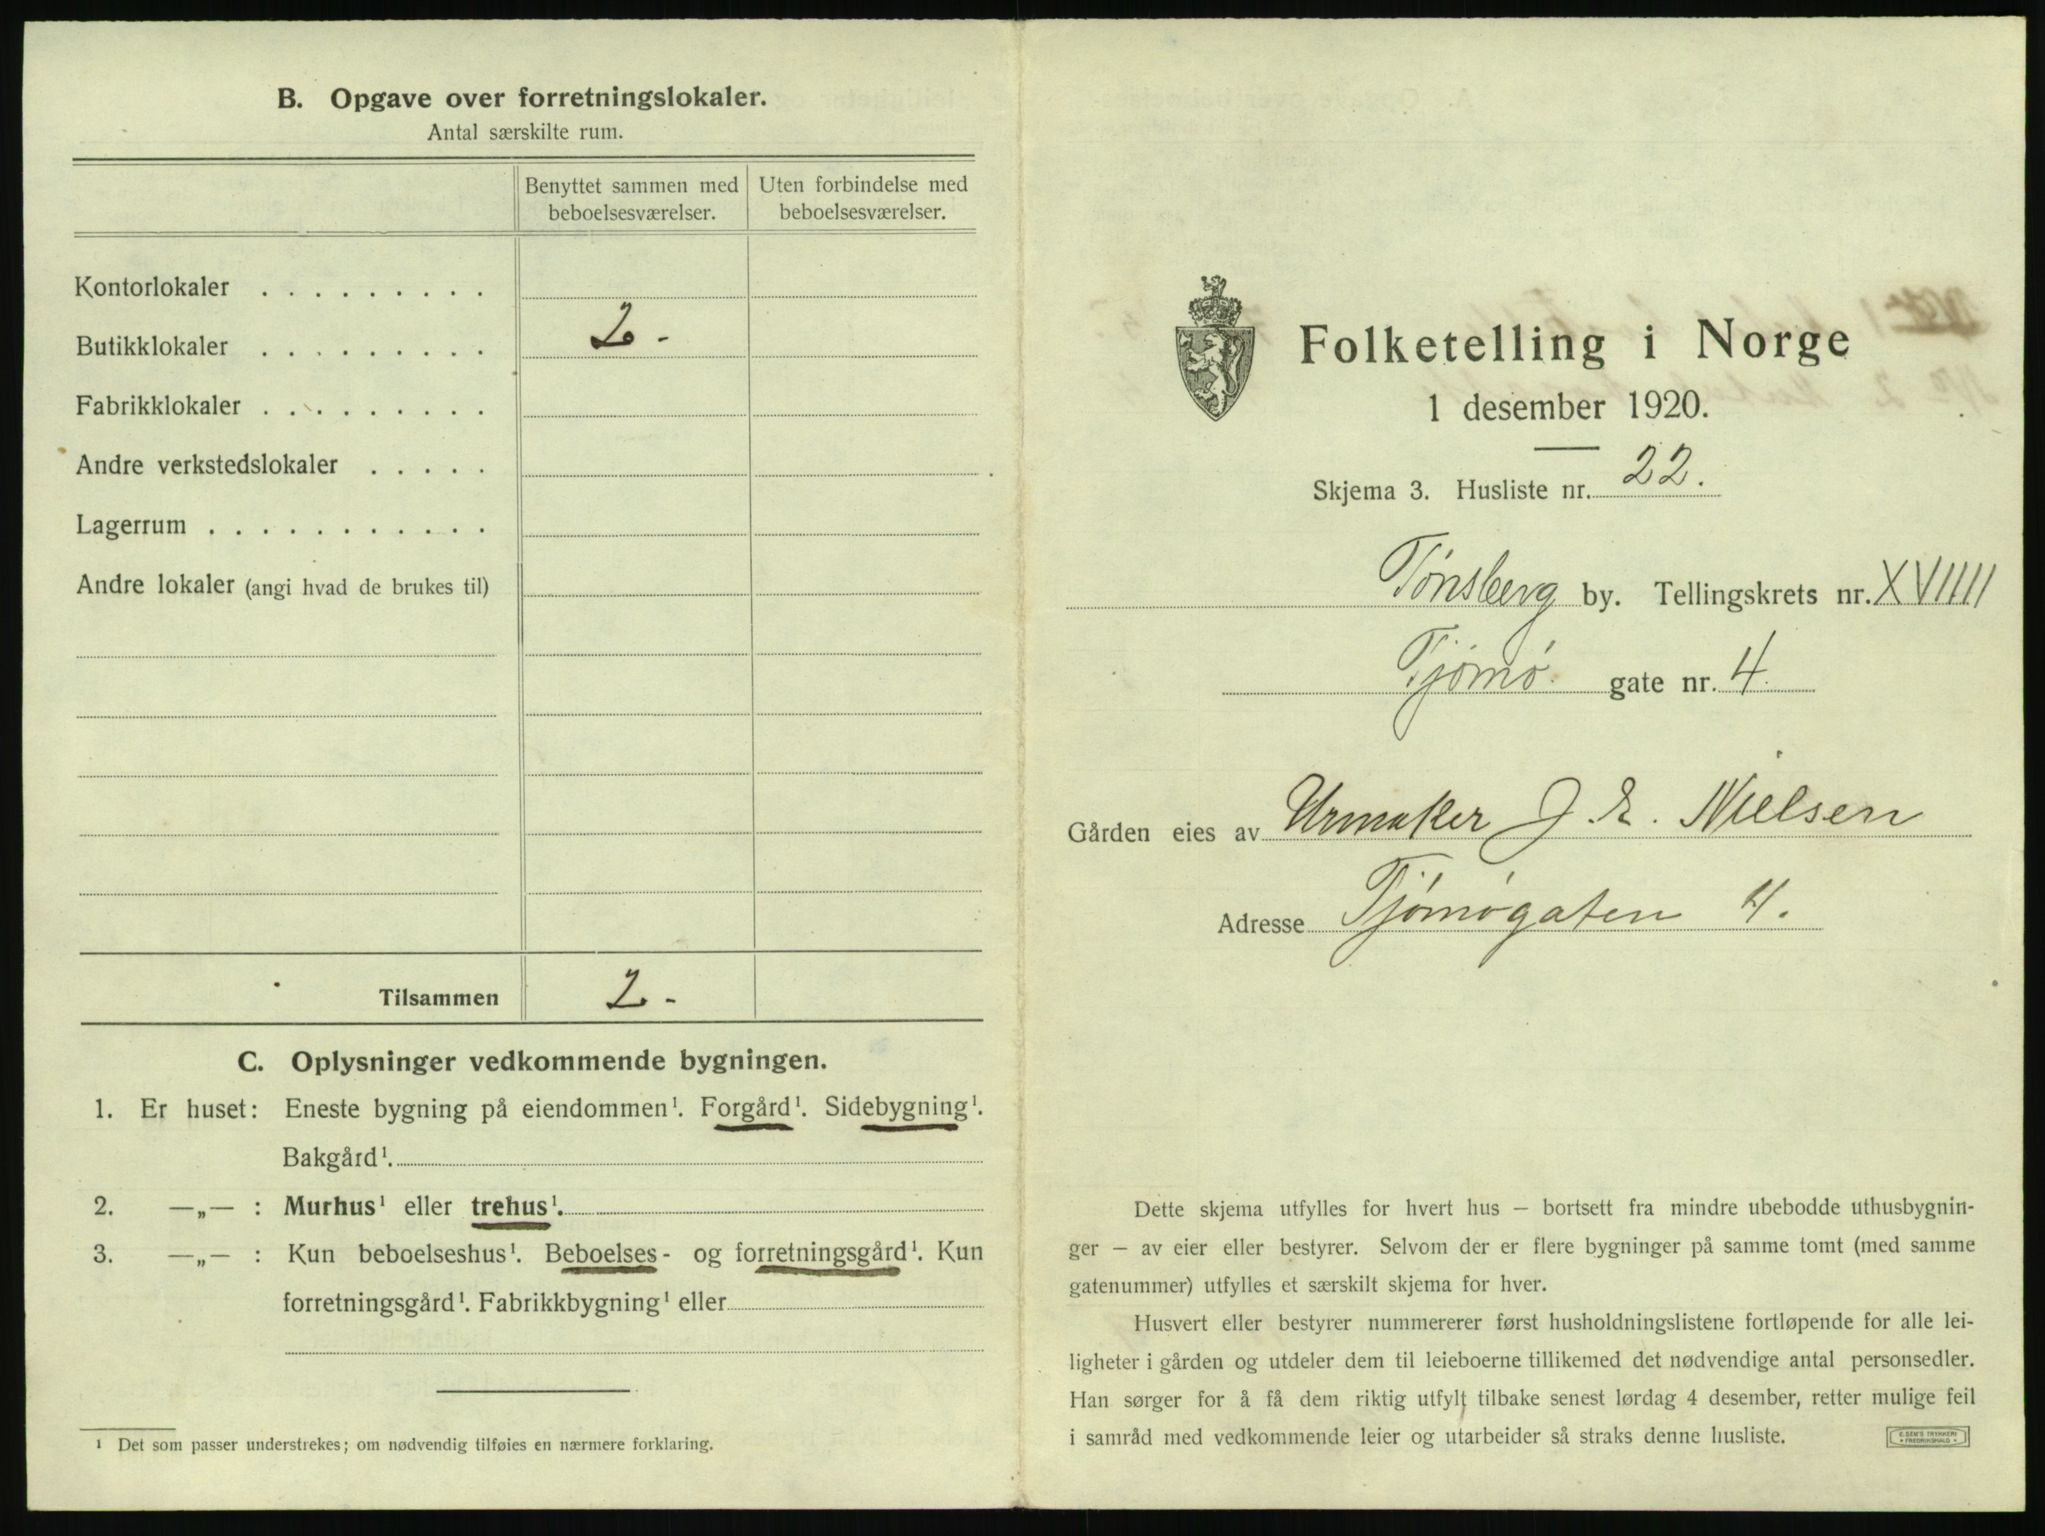 B. Opgave over forretningslokaler.
Antal særskilte rum.
Benyttet sammen med beboelsesværelser.
Uten forbindelse med beboelsesværelser.
Kontorlokaler . . . . . . . . .
Butikklokaler . . . . . . . . . 2 -
Fabrikklokaler . . . . . . . . .
Andre verkstedslokaler . . . . .
Lagerrum . . . . . . . . . . .
Andre lokaler (angi hvad de brukes til)
Tilsammen 2 -
C. Oplysninger vedkommende bygningen.
1. Er huset: Eneste bygning på eiendommen¹. Forgård¹. Sidebygning¹.
Bakgård¹.
2. —„— : Murhus¹ eller trehus¹.
3. —„— : Kun beboelseshus¹. Beboelses- og forretningsgård¹. Kun
forretningsgård¹. Fabrikkbygning¹ eller
¹ Det som passer understrekes; om nødvendig tilføies en nærmere forklaring.
Folketelling i Norge
1 desember 1920.
Skjema 3. Husliste nr. 22.
Tønsberg by. Tellingskrets nr. XVIIII
Tjømø gate nr. 4
Gården eies av Urmaker J. E. Nielsen
Adresse Tjømøgaten 4.
Dette skjema utfylles for hvert hus – bortsett fra mindre ubebodde uthusbygnin-
ger – av eier eller bestyrer. Selvom der er flere bygninger på samme tomt (med samme
gatenummer) utfylles et særskilt skjema for hver.
Husvert eller bestyrer nummererer først husholdningslistene fortløpende for alle lei-
ligheter i gården og utdeler dem til leieboerne tillikemed det nødvendige antal personsedler.
Han sørger for å få dem riktig utfylt tilbake senest lørdag 4 desember, retter mulige feil
i samråd med vedkommende leier og utarbeider så straks denne husliste.